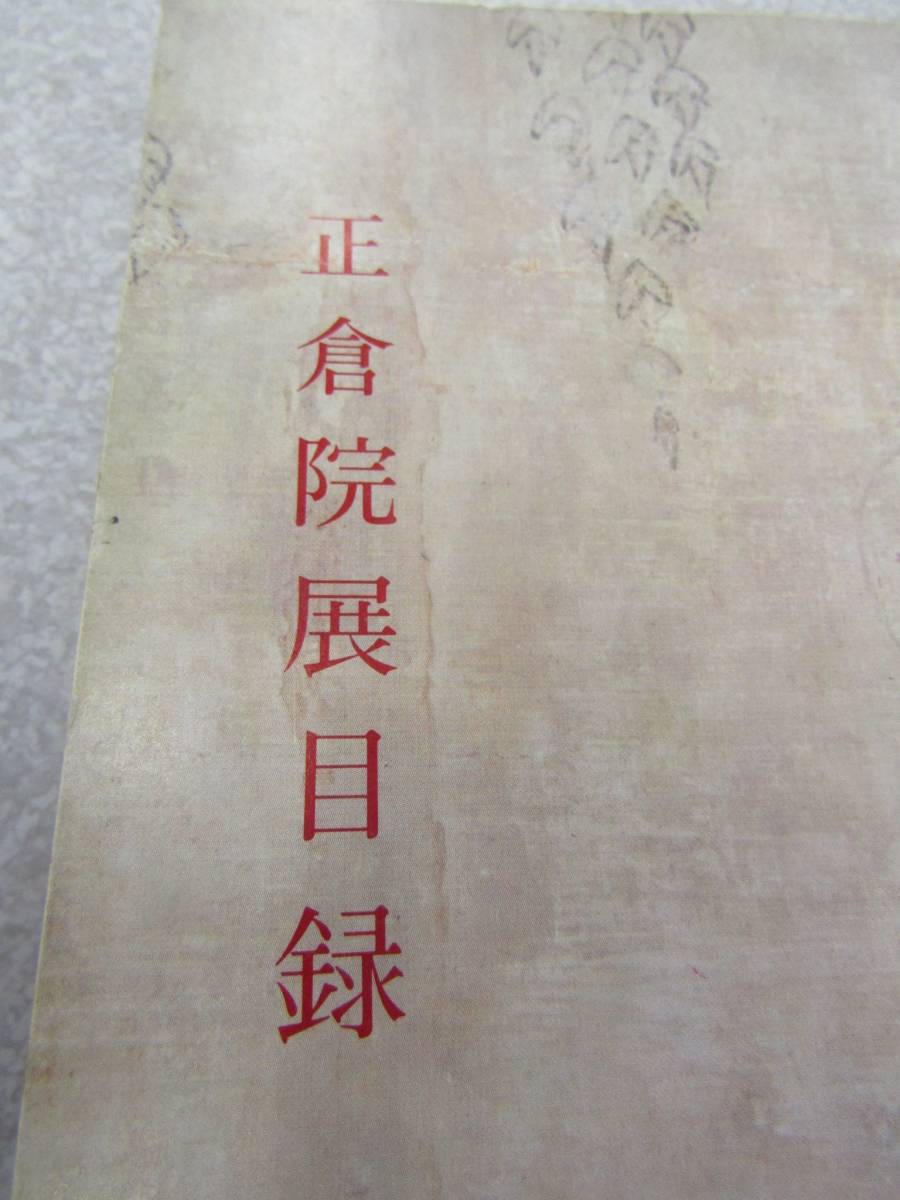 正倉院展目録